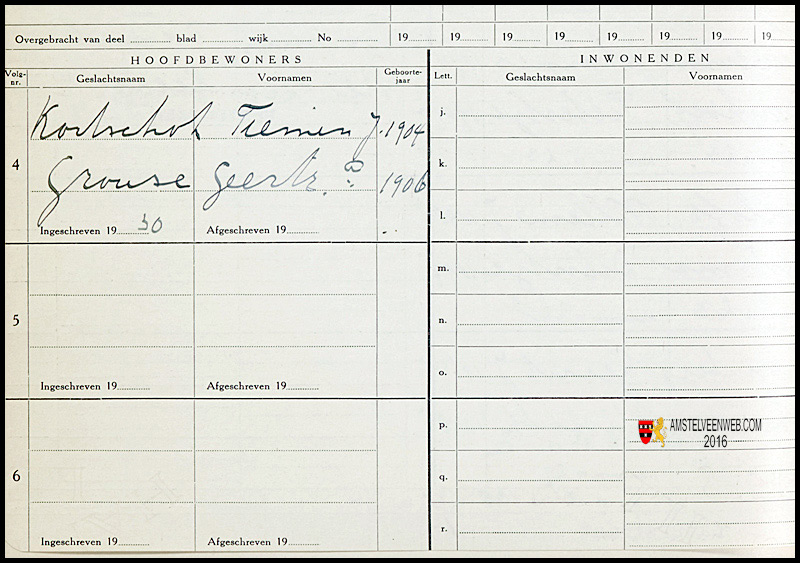 Overgebracht van deel blad wijk No 19 19 19 19 19 19 19 19
HOOFDBEWONERS INWONENDEN
Volg-nr. Geslachtsnaam Voornamen Geboorte-jaar Lett. Geslachtsnaam Voornamen
j.
Tiemen J. 1904
4
k.
Grouse Geertr. 1906
l.
Ingeschreven 1930 Afgeschreven 19
m.
5
n.
o.
Ingeschreven 19 Afgeschreven 19
p.
AMSTELVEENWEB.COM
2016
6
q.
r.
Ingeschreven 19 Afgeschreven 19